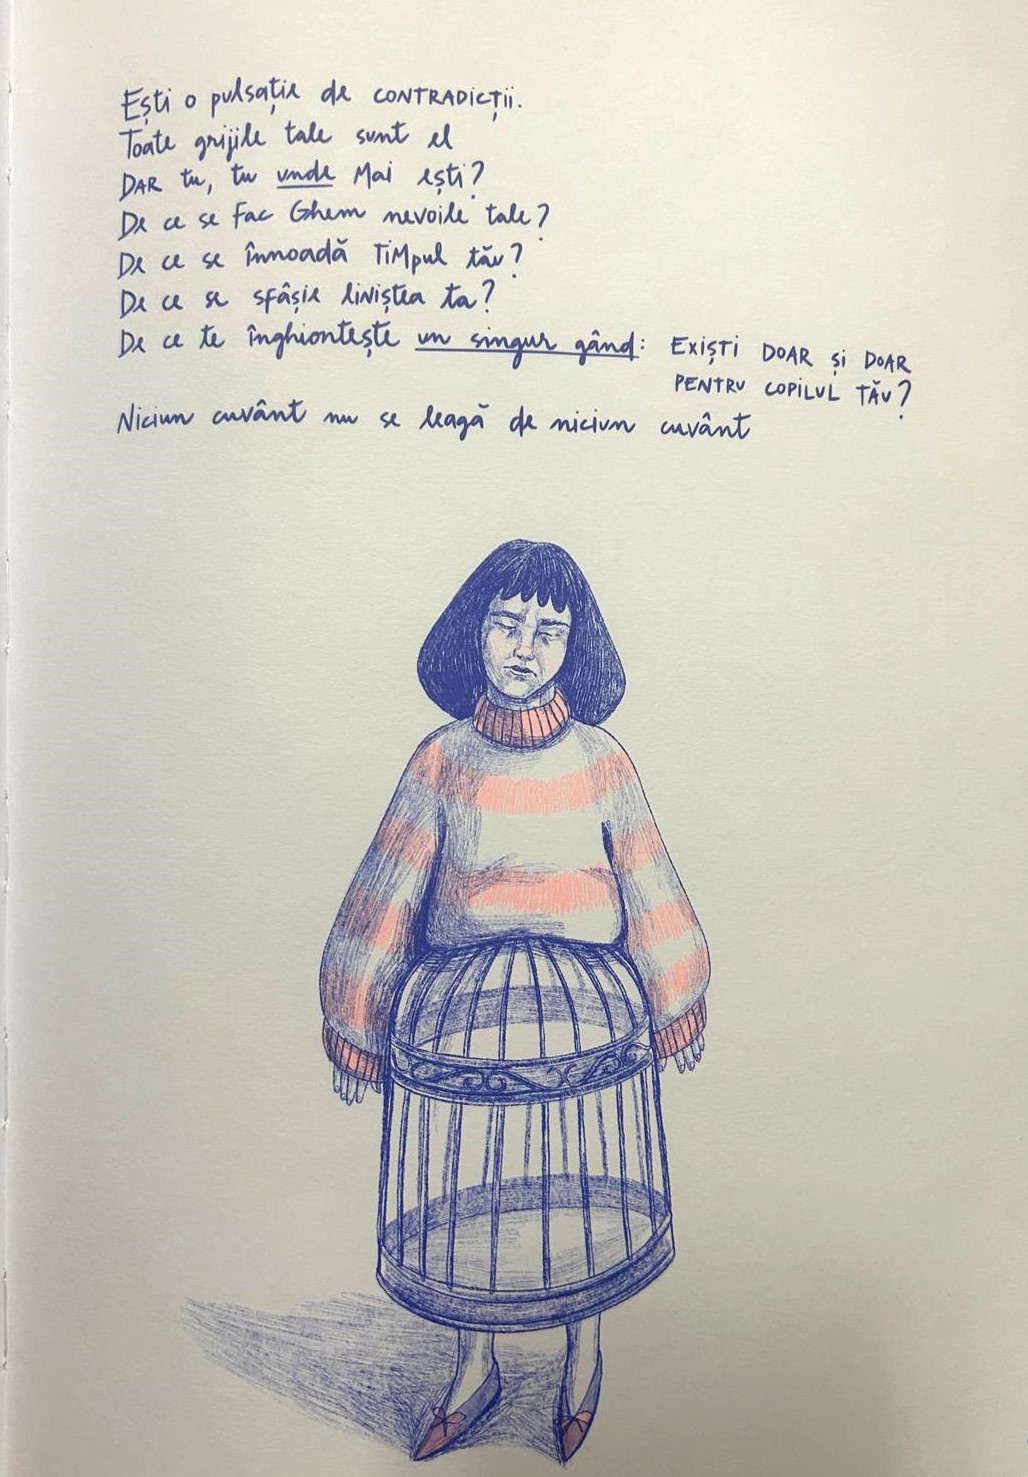 Ești o pulsație de CONTRADICȚii.
Toate grijile tale sunt el
DAR tu, tu unde Mai ești?
De ce se fac Ghem nevoile tale?
De ce se înnoadă TiMpul tău?
De ce se sfâșie liniștea ta?
De ce te înghiontește un singur gând: EXIȘTI DOAR și DOAR
PENTRU COPILUL TĂU?
Niciun cuvânt nu se leagă de niciun cuvânt